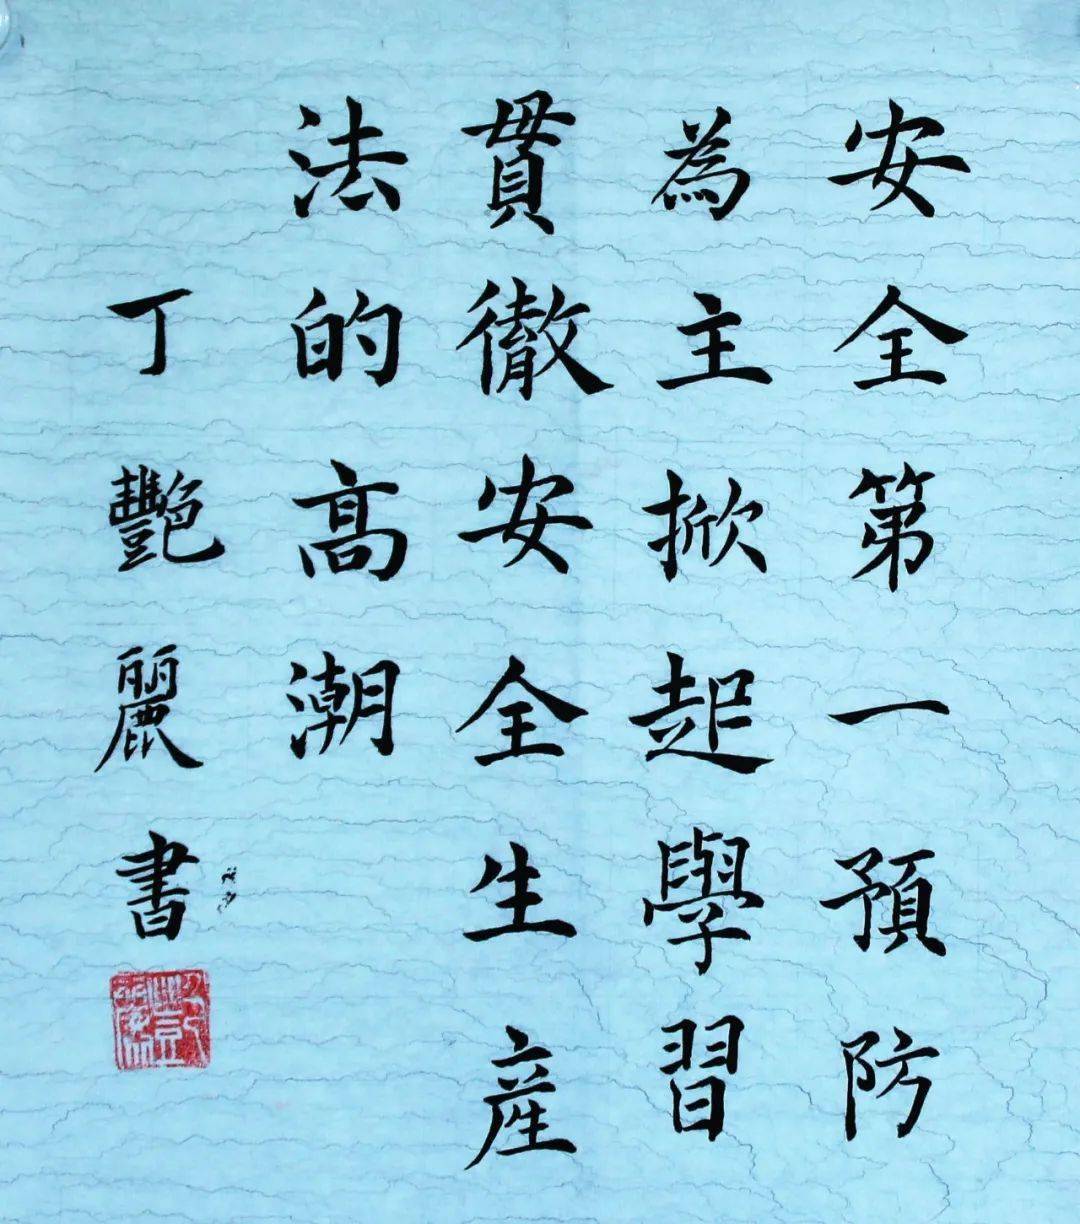 安全第一預防
為主掀起學習
貫徹安全生産
法的高潮
丁艷麗書